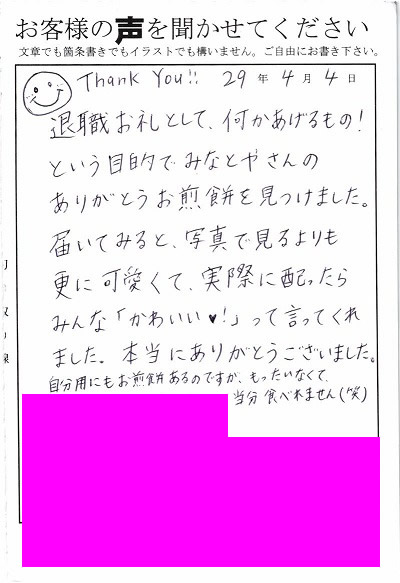 お客様の声を聞かせてください
文章でも箇条書きでもイラストでも構いません。ご自由にお書き下さい。
Thank You!! 29年4月4日
退職お礼として、何かあげるもの!
という目的でみなとやさんの
ありがとうお煎餅を見つけました。
届いてみると、写真で見るよりも
更に可愛くて、実際に配ったら
みんな「かわいい♥!」って言ってくれ
ました。本当にありがとうございました。
自分用にもお煎餅あるのですが、もったいなくて、
当分食べれません(笑)